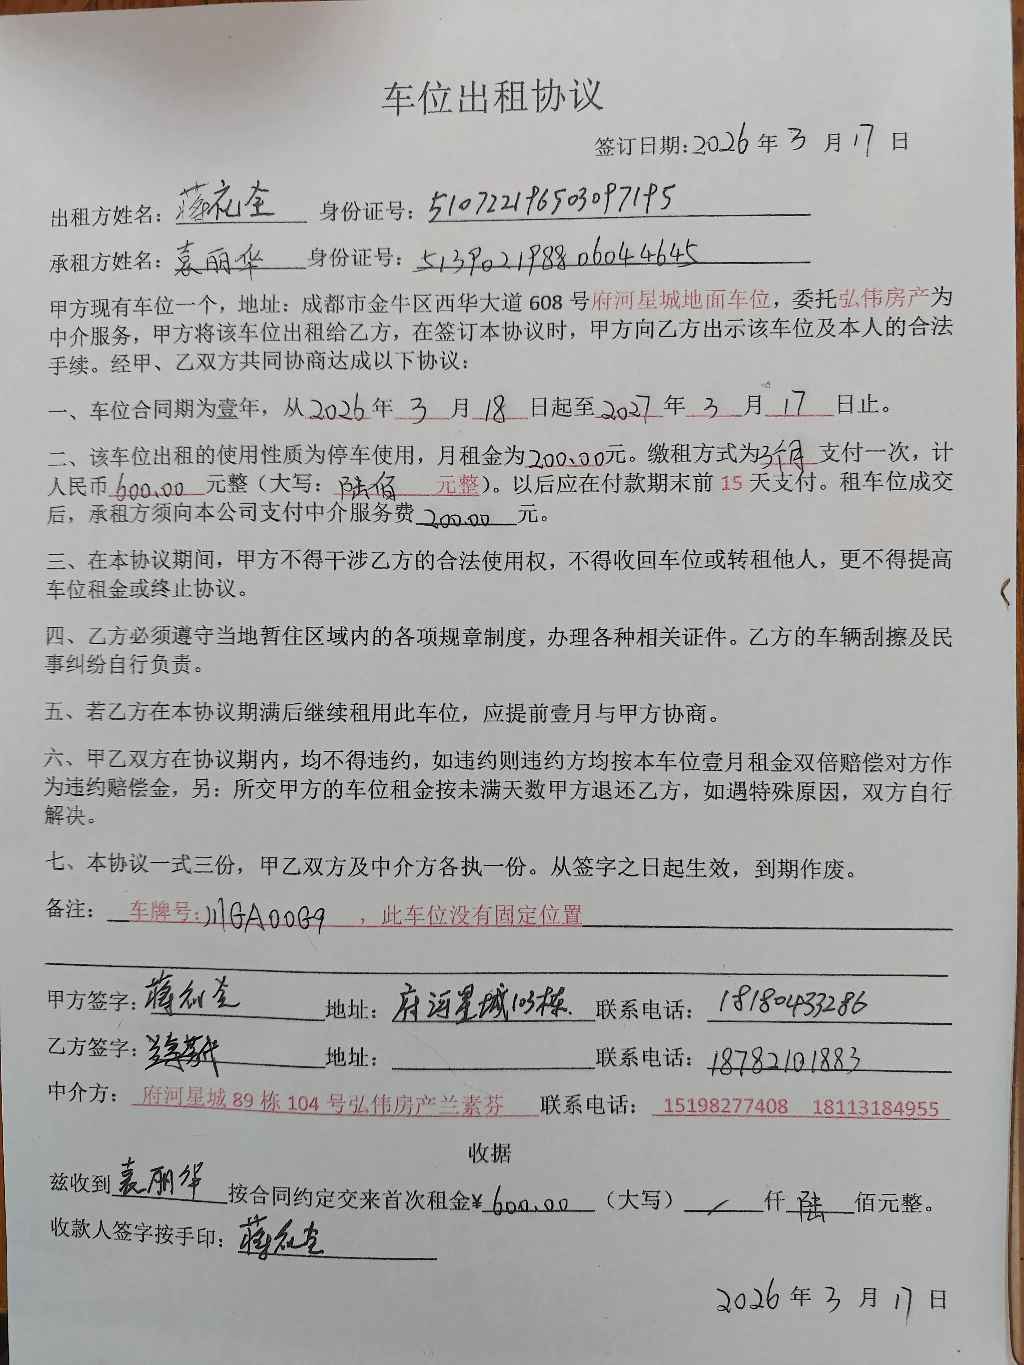 车位出租协议
签订日期:2026年3月17日
出租方姓名：蒋花全 身份证号：510722196503097195
承租方姓名：袁丽华 身份证号：513902198806044645
甲方现有车位一个，地址：成都市金牛区西华大道608号府河星城地面车位，委托弘伟房产为
中介服务，甲方将该车位出租给乙方，在签订本协议时，甲方向乙方出示该车位及本人的合法
手续。经甲、乙双方共同协商达成以下协议：
一、车位合同期为壹年，从2026年3月18日起至2027年3月17日止。
二、该车位出租的使用性质为停车使用，月租金为200.00元。缴租方式为3个月支付一次，计
人民币600.00元整（大写：陆佰 元整）。以后应在付款期末前15天支付。租车位成交
后，承租方须向本公司支付中介服务费200.00元。
三、在本协议期间，甲方不得干涉乙方的合法使用权，不得收回车位或转租他人，更不得提高
车位租金或终止协议。
四、乙方必须遵守当地暂住区域内的各项规章制度，办理各种相关证件。乙方的车辆刮擦及民
事纠纷自行负责。
五、若乙方在本协议期满后继续租用此车位，应提前壹月与甲方协商。
六、甲乙双方在协议期内，均不得违约，如违约则违约方均按本车位壹月租金双倍赔偿对方作
为违约赔偿金，另：所交甲方的车位租金按未满天数甲方退还乙方，如遇特殊原因，双方自行
解决。
七、本协议一式三份，甲乙双方及中介方各执一份。从签字之日起生效，到期作废。
备注：车牌号:川GA00G9 ，此车位没有固定位置
甲方签字: 地址：府河星城103栋. 联系电话：18180433286
乙方签字: 地址： 联系电话：18782101883
中介方：府河星城89栋104号弘伟房产兰素芬 联系电话：15198277408 18113184955
收据
兹收到袁丽华按合同约定交来首次租金¥600.00（大写）/仟陆佰元整。
收款人签字按手印：
2026年3月17日